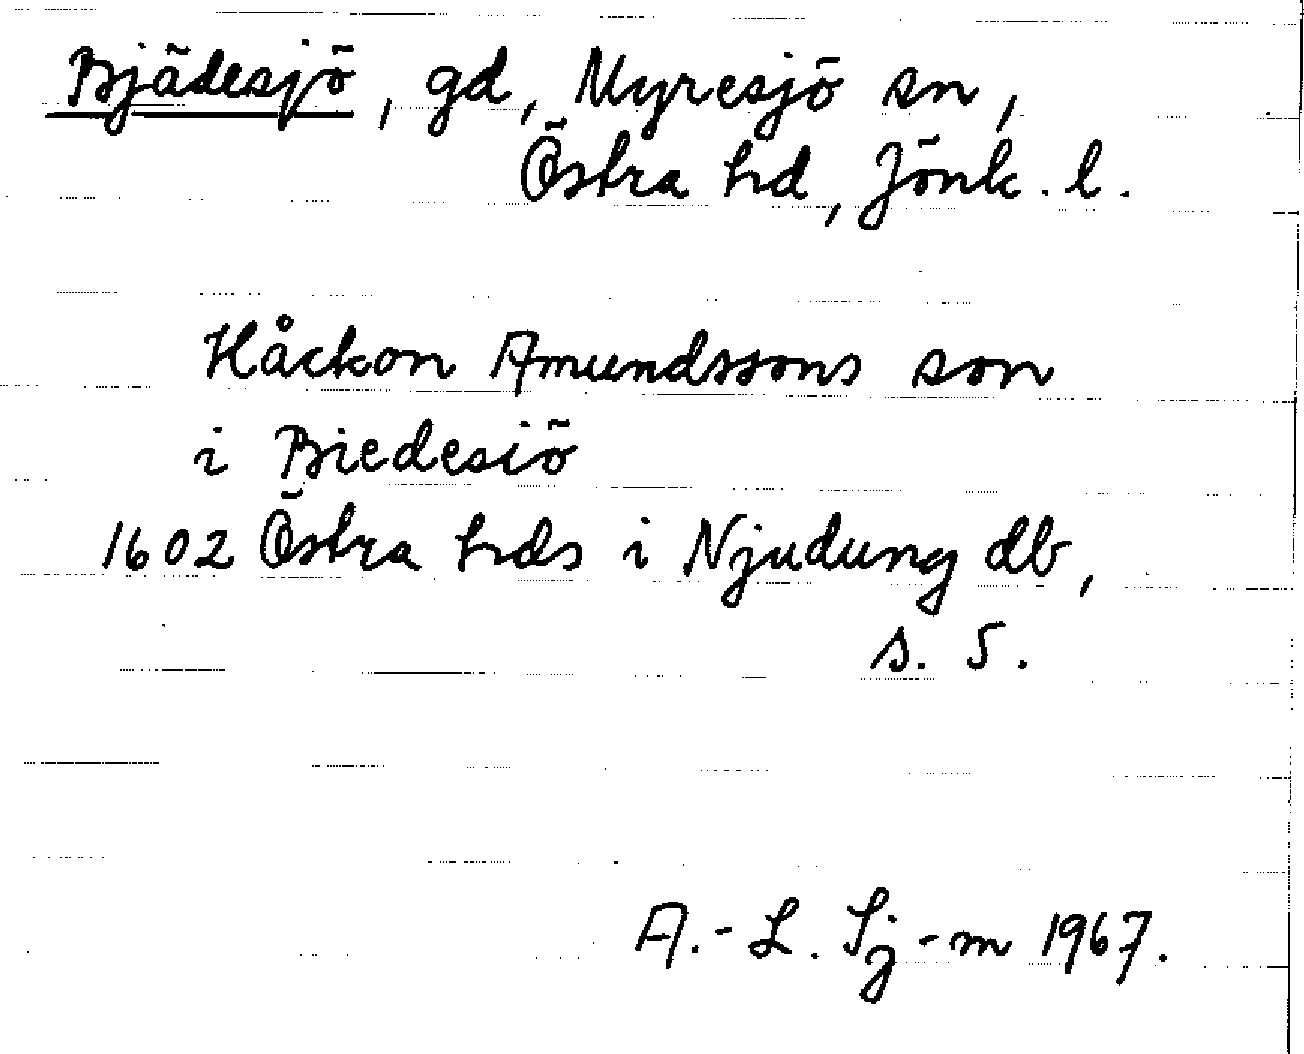 Bjädesjö, gd, Myresjö sn,
Östra hd, Jönk. l.
Håckon Amundssons son
i Biedesiö
1602 Östra hds i Njudung db,
s. 5.
A.-L. Sj-m 1967.